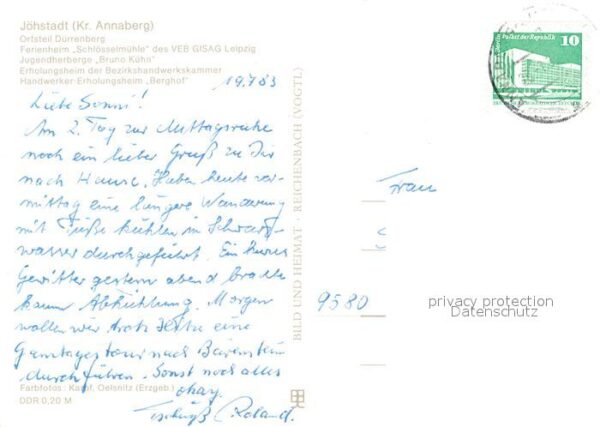 Jöhstadt (Kr. Annaberg)
Ortsteil Dürrenberg
Ferienheim „Schlösselmühle" des VEB GISAG Leipzig
Jugendherberge „Bruno Kühn"
Erholungsheim der Bezirkshandwerkskammer
Handwerker-Erholungsheim „Berghof"
19.7.83
Liebe Sonni!
Am 2. Tag zur Mittagsruhe
noch ein lieber Gruß zu Dir
nach Hause. Haben heute vor-
mittag eine längere Wanderung
mit Füße kühlen in Schwarz-
wasser durchgeführt. Ein kurzes
Gewitter gestern abend brachte
kaum Abkühlung. Morgen
wollen wir trotz Hitze eine
Ganztagestour nach Bärenstein
durchführen. Sonst noch alles
okay.
Tschüß Roland.
Farbfotos: Kämpf, Oelsnitz (Erzgeb.)
DDR 0,20 M
BILD UND HEIMAT · REICHENBACH (VOGTL)
Berlin, Palast der Republik
10
Frau
9580
privacy protection
Datenschutz